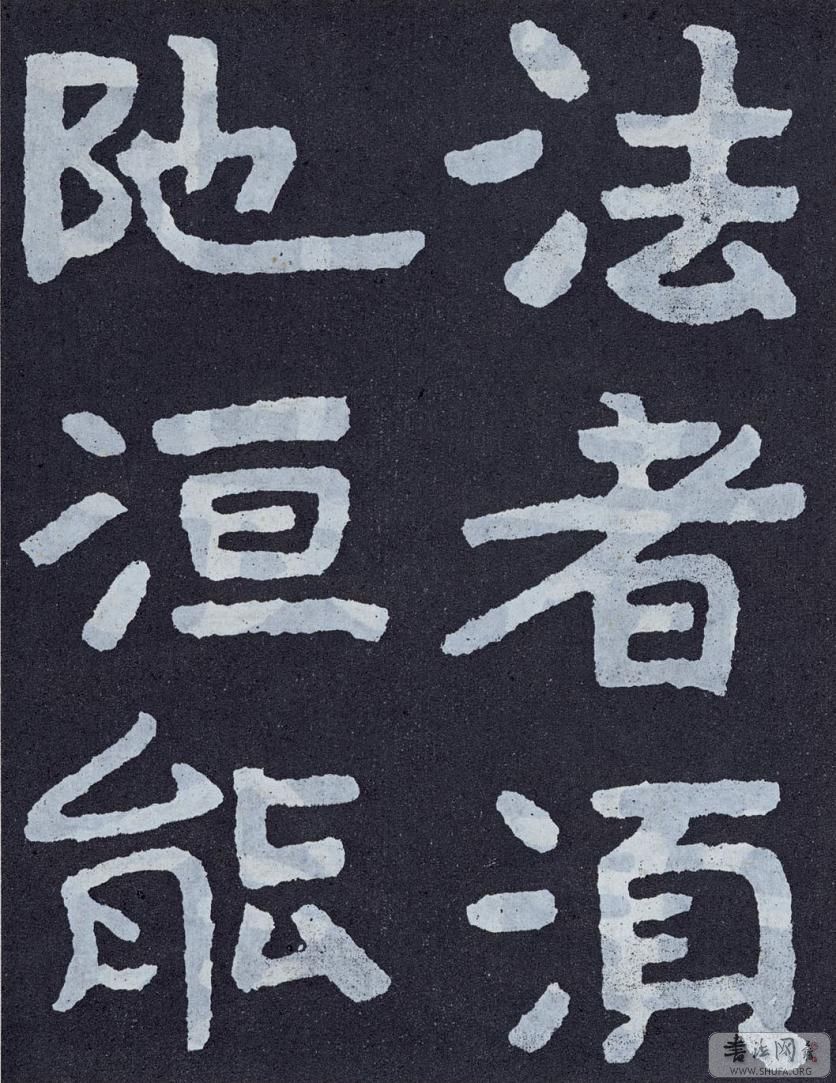 法者湏
陁洹能
书法网
WWW.SHUFA.ORG